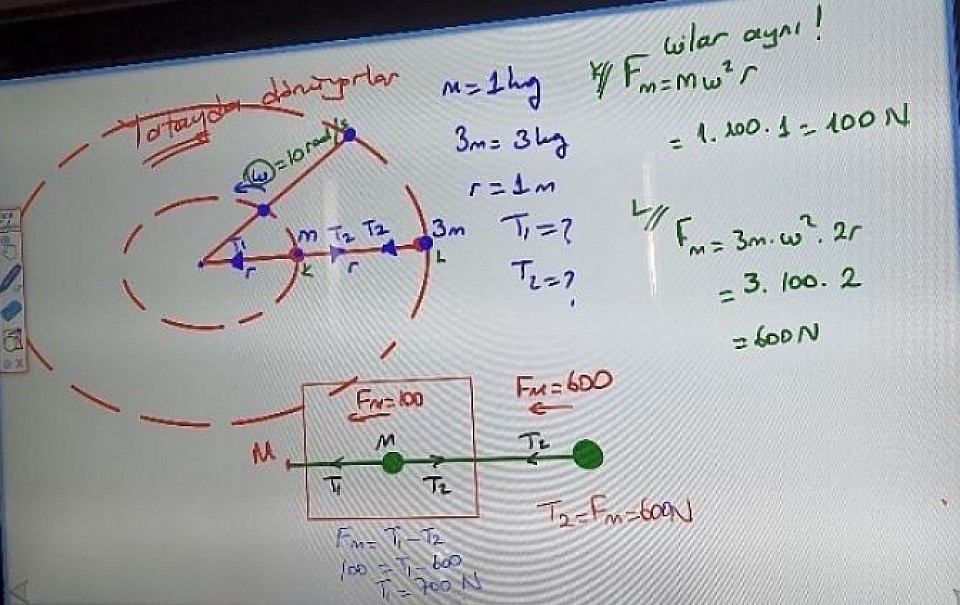 Yatayda dönüyorlar
ω = 10 rad/s
m T₂ T₂ 3m
T₁ r K r L
m = 1 kg
3m = 3 kg
r = 1 m
T₁ = ?
T₂ = ?
ω'lar aynı!
K// Fₘ = mω²r
= 1.100.1 = 100 N
L// Fₘ = 3m.ω².2r
= 3.100.2
= 600 N
Fₘ = 100
Fₘ = 600
M m T₂
T₁ T₂
T₂ = Fₘ = 600N
Fₘ = T₁ - T₂
100 = T₁ - 600
T₁ = 700 N